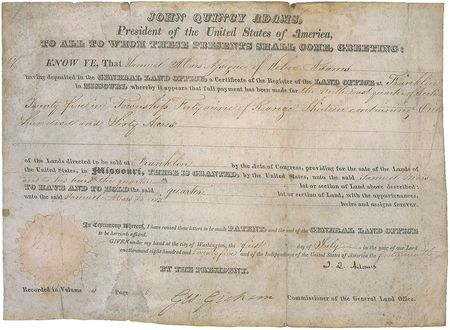 JOHN QUINCY ADAMS,
President of the United States of America,
TO ALL TO WHOM THESE PRESENTS SHALL COME, GREETING:
KNOW YE, That Samuel Assignee of Adams
having deposited in the GENERAL LAND OFFICE, a Certificate of the Register of the LAND OFFICE at Franklin
in MISSOURI whereby it appears that full payment has been made for the quarter of Section
Twenty five in Township Forty nine of Range containing One
hundred and Sixty Acres
of the Lands directed to be sold at Franklin by the Acts of Congress, providing for the sale of the Lands of
the United States, in Missouri, THERE IS GRANTED, by the United States, unto the said Samuel
and his heirs the quarter lot or section of Land above described:
TO HAVE AND TO HOLD the said quarter lot or section of Land, with the appurtenances,
unto the said Samuel his heirs and assigns forever.
In Testimony Whereof, I have caused these letters to be made PATENT, and the seal of the GENERAL LAND OFFICE
to be hereunto affixed.
GIVEN under my hand at the city of Washington, the first day of July in the year of our Lord
one thousand eight hundred and twenty five and of the Independence of the United States of America the
J. Q. Adams
BY THE PRESIDENT.
Geo Graham Commissioner of the General Land Office.
Recorded in Volume Page